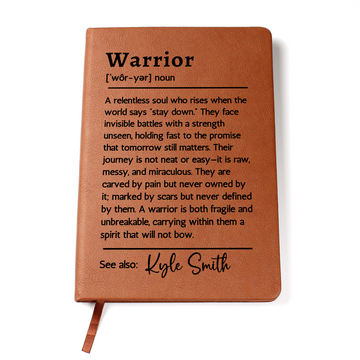 Warrior
['wôr-yər] noun
A relentless soul who rises when the
world says "stay down." They face
invisible battles with a strength
unseen, holding fast to the promise
that tomorrow still matters. Their
journey is not neat or easy—it is raw,
messy, and miraculous. They are
carved by pain but never owned by
it; marked by scars but never defined
by them. A warrior is both fragile and
unbreakable, carrying within them a
spirit that will not bow.
See also: Kyle Smith